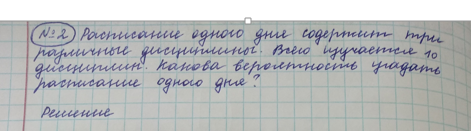 №2 Расписание одного дня содержит три
различные дисциплины. Всего изучается 10
дисциплин. Какова вероятность угадать
расписание одного дня?
Решение